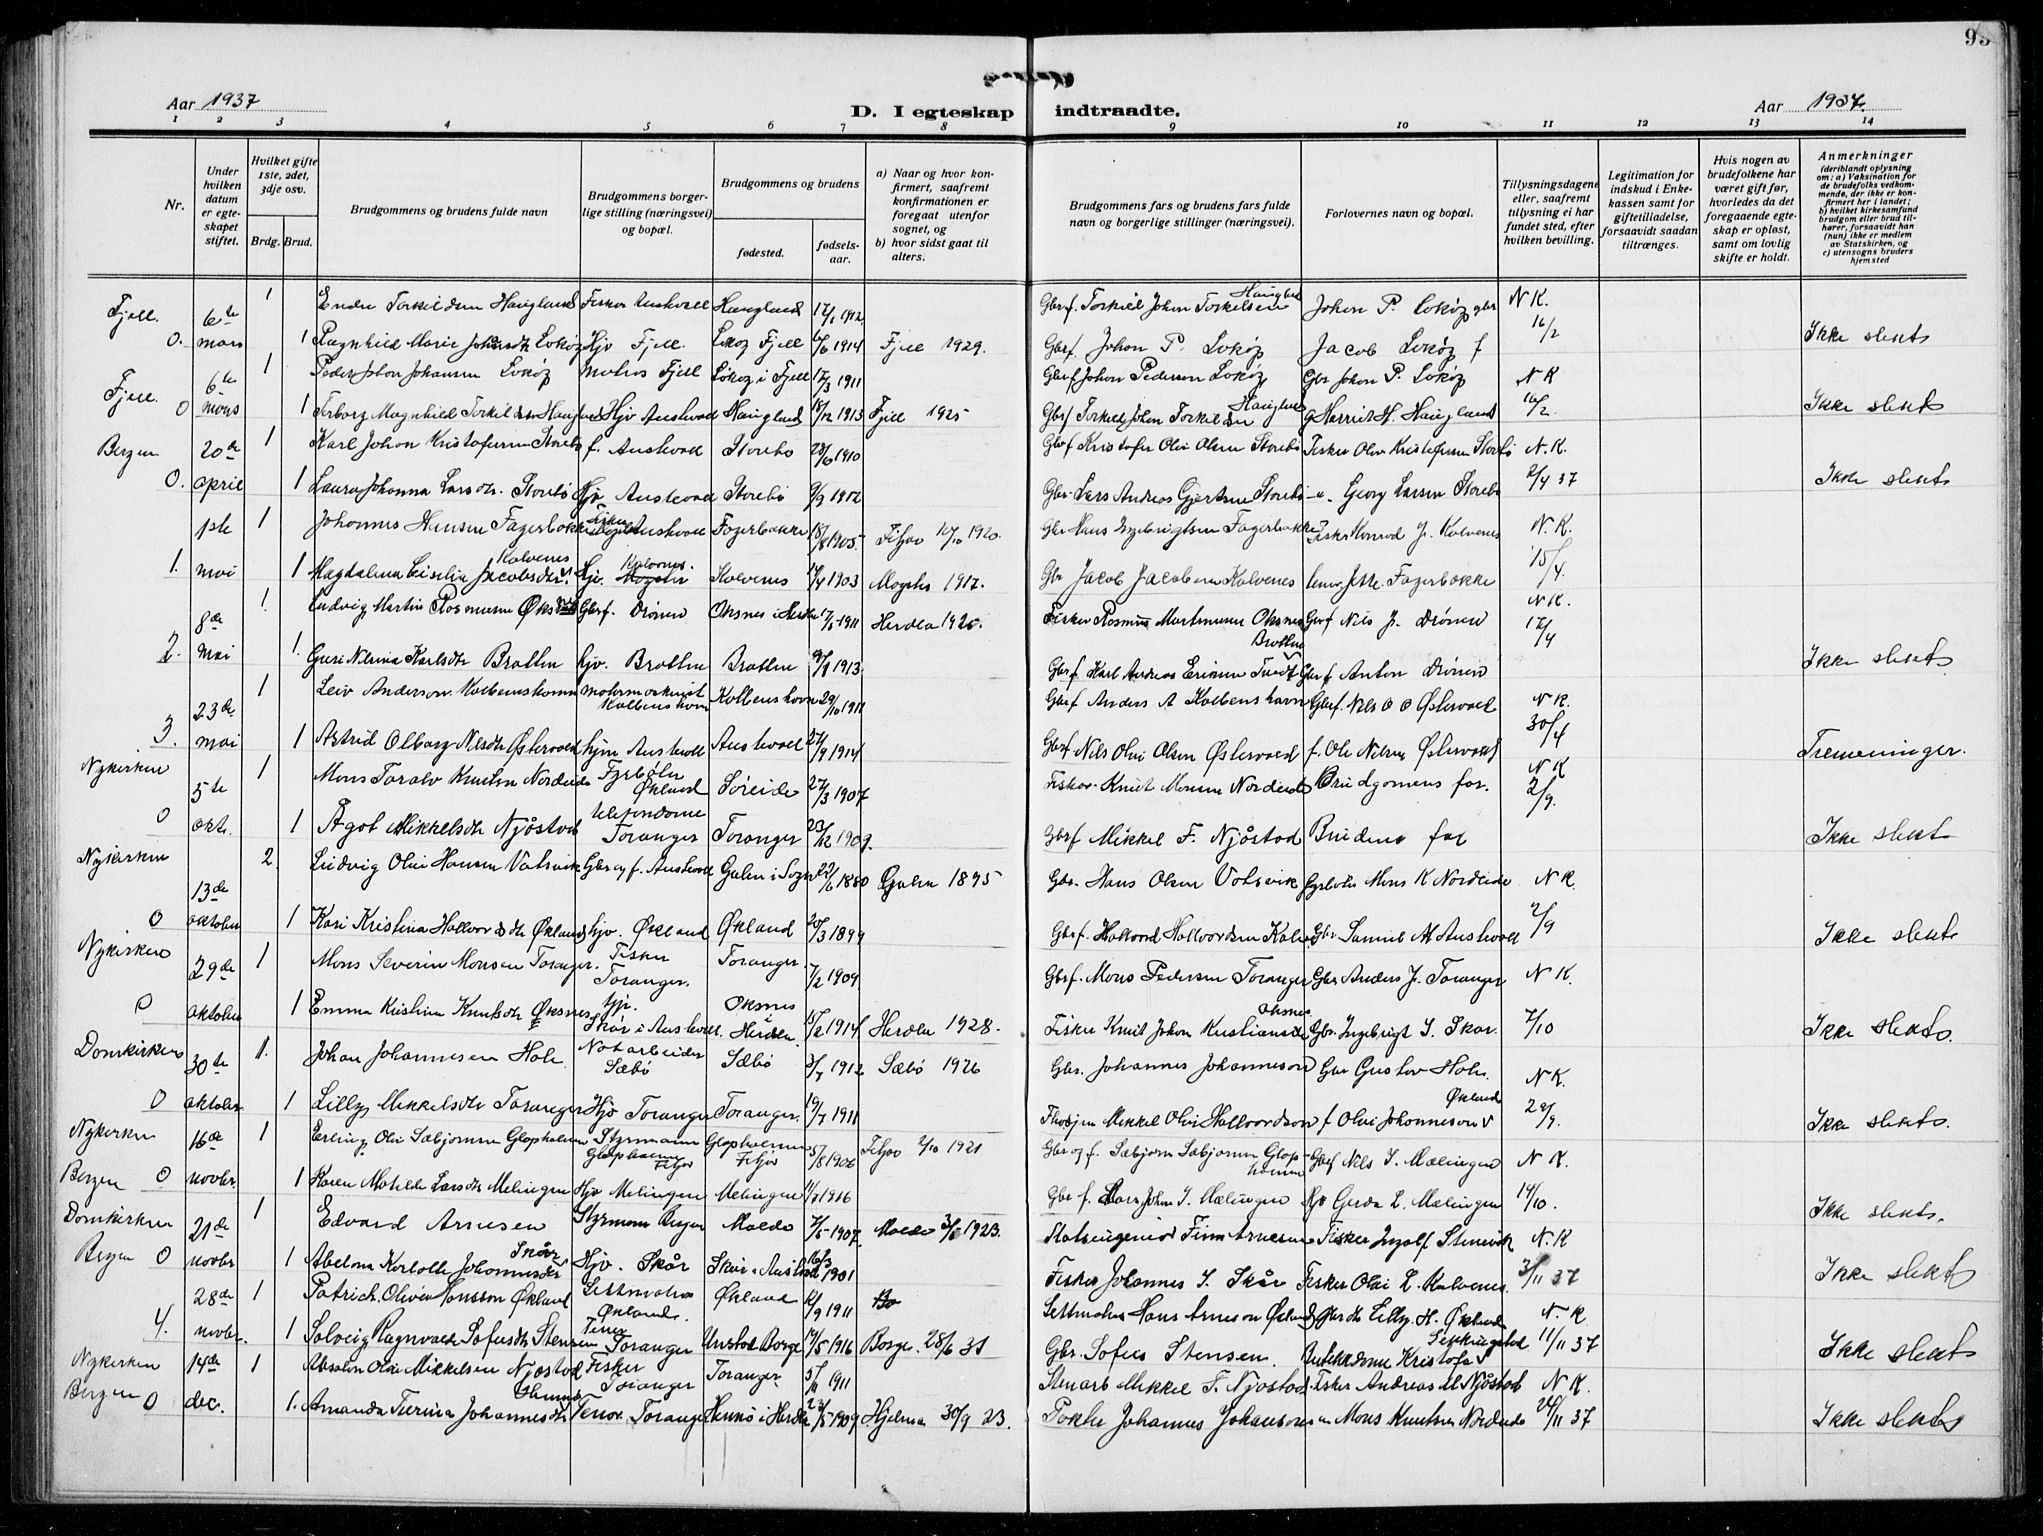 93
Aar 1937
D. I egteskap indtraadte.
Aar 1937.
1 2 3 4 5 6 7 8 9 10 11 12 13 14
Nr.
Under hvilken datum er egteskapet stiftet.
Hvilket gifte 1ste, 2det, 3dje osv.
Brdg. Brud.
Brudgommens og brudens fulde navn
Brudgommens borgerlige stilling (næringsvei) og bopæl.
Brudgommens og brudens
fødested.
fødselsaar.
a) Naar og hvor konfirmert, saafremt konfirmationen er foregaat utenfor sognet, og
b) hvor sidst gaat til alters.
Brudgommens fars og brudens fars fulde navn og borgerlige stillinger (næringsvei).
Forlovernes navn og bopæl.
Tillysningsdagene eller, saafremt tillysning ei har fundet sted, efter hvilken bevilling.
Legitimation for indskud i Enkekassen samt for giftetilladelse, forsaavidt saadan tiltrænges.
Hvis nogen av brudefolkene har været gift før, hvorledes da det foregaaende egteskap er opløst, samt om lovlig skifte er holdt.
Anmerkninger (deriblandt oplysning om: a) Vaksination for de brudefolks vedkommende, der ikke er konfirmert her i landet; b) hvilket kirkesamfund brudgom eller brud tilhører, forsaavidt han (hun) ikke er medlem av Statskirken, og c) utensogns bruders hjemsted
Fjell. 6te 1 Endre Torkildsen Haugland Fisker Austevoll Haugland 1912 Gbrf. Torkild Johan Torkelsen Haugland Johan P. Lokøy gbr N K.
0. mars 1 Ragnhild Marie Johansdtr Lokøy Hjv Fjell. Lokøy Fjell 1914 Fjell 1929. Gbrf. Johan P. Lokøy Jacob Lokøy f 16/2 Ikke slekt
Fjell. 6te 1 Peder Johan Johansen Lokøy Fjell Lokøy i Fjell 1911 Gbrf Johan Pedersen Lokøy Gbr Johan P. Lokøy N K
0 mars 1 Torborg Magnhild Torkildsen Haugland Hjv Austevoll Haugland 1913 Fjell 1925 Gbrf Torkild Johan Torkildsen Haugland Harriet H. Haugland 16/2. Ikke slekt
Bergen 20de 1 Karl Johan Kristofersen Storebø f. Austevoll Storebø 1910 Gbrf Kristofer Olai Olsen Storebø Fisker Olav Kristofersen Storbø N. K.
0. april 1 Laura Johanna Larsdtr. Storebø Hjv Austevoll Storebø 1912 Gbr. Lars Andreas Gjertsen Storebø Georg Larsen Storebø 2/4 37 Ikke slekt
1ste 1 Johannes Hansen Fagerbakke Fisker Austevoll Fagerbakke 18/8 1905. Fitjar 1920. Gbr Hans Ingebrigtsen Fagerbakke Fisker Konrad J. Kalvenes N. K.
1. mai 1 Magdalena Kalvenes Jacobsdtr. Hjv. Kalvenes. Kalvenes 1903 Møgster 1917. Gbr Jacob Jacobsen Kalvenes Fagerbakke 15/4.
8de 1. Ludvig Martin Rasmussen Øksnes Gbrf. Drønen Øksnes i Herdla 1911 Herdla 1925. Fisker Rasmus Martinusen Oksnes Gbrf Nils J. Drønen N K. 17/4
2. mai 1. Guri Nilsina Karlsdtr Bratten hjv. Bratten Bratten 1913 Gbrf Karl Andreas Eriksen Bratten Gbrf Anton Drønen Ikke slekt
23de 1 Leiv Anderson Kolbenshavn Kolbenshavn Kolbenshavn 29/10 1911 Gbrf Anders A Kolbenshavn Gbrf. Nils O O Østervold N K.
3. mai 1 Astrid Olborg Nilsdtr Østervold hjm Austevoll Austevoll 27/9 1914 Gbrf Nils Olai Olsen Østervold f. Ole Nilsen Østervold 30/4 Tremeninger.
Nykirken 5te 1 Mons Toralv Knutsen Nordeide Fyrbøter Økland Søreide 27/3 1907 Fisker Knut Monsen Nordeide Brudgomens far. N K
0 okt. 1 Agot Mikkelsdtr Njøstad telefondame Toranger Toranger 23/12 1909. Gbrf Mikkel F. Njøstad Brudens far 2/9. Ikke slekt
Nykirken 13de 2. Ludvig Olai Hansen Vatsvik Gbr og f. Austevoll Gulen i Sogn 1880 Gulen 1895 Gbr. Hans Olsen Vatsvik Fyrbøter Mons K Nordeide N K.
0 oktober 1 Kari Kristina Hallvordsdtr Økland hjv. Økland Økland 20/3 1899 Gbrf. Gbr Samuel Austevoll 2/9 Ikke slekt
Nykirken 29de 1 Mons Severin Monsen Toranger. Fisker Toranger. Toranger. 7/2 1909 Gbrf. Mons Pedersen Toranger Gbr Anders J. Toranger N K.
0 oktober 1 Emma Kristina Knutsdtr Øksnes hjv. Skår i Austevoll Oksnes i Herdla. 1914 Herdla 1928. Fisker Knut Johan Kristiansen Oksnes Gbr. Ingebrigt S. Skår. 7/10 Ikke slekt.
Domkirken 30te 1. Johan Johannesen Hole Notarbeider Sæbø Sæbø 3/7 1912 Sæbø 1926 Gbr. Johannes Johanneson Gbr Gustav Hole. N K.
0 oktober 1 Lilly Mikkelsdtr Toranger Hjv Toranger Toranger. 19/7 1911 Mikkel Olai Hallvordson f Olai Johanneson Økland 28/9. Ikke slekt.
Nykirken 16de 1 Erling Olai Sæbjørnsen Glopholmen Styrmann Glopholmen Fitjar Glopholmen Fitjar 1906 Fitjar 1921 Gbr og f. Sæbjørn Sæbjørnsen Glopholmen Gbrf Nils J. Mælingen N K.
Bergen 0 novbr. 1 Karen Matilde Larsdtr Melingen Hjv Melingen Melingen 1916 Gbr f. Lars Johan J. Mælingen Hjv Gerda L. Mælingen 14/10. Ikke slekt.
Domkirken 21de 1 Edvard Arnesen Styrmann Bergen Molde 7/5 1907 Molde 1923. Statsingeniør Finn Arnesen Fisker Ingolf Stenevik N. K
Bergen 0 novbr 1 Abelona Karlotte Johannesdtr Skår Hjv. Skår Skår i Austevoll 16/3 1901 Fisker Johannes J. Skår Fisker Olai L. Kalvenes 3/11 37 Ikke slekt
28de 1 Patrich Oliver Hansson Økland Settmaler Økland. Økland 1911 Settmaler Hans Arneson Økland Lilly H. Økland N. K
4. novbr. 1 Solveig Ragnvalda Sofusdtr Stensen Toranger Unstad Borge 17/5 1916 Borge. 28/6 31 Gbr. Sofus Stensen. Kristofa 11/11 37 Ikke slekt
Nykirken 14de 1 Absalon Olai Mikkelsen Njøstad Fisker Toranger Toranger 5/11 1911 Stenarb Mikkel F. Njøstad. Fisker Andreas M Njøstad N K.
Bergen 0 dec. 1. Amanda Johannesdtr Toranger i Herdla 1909 Hjelme 30/9 23. Johannes Johansen Mons Knutsen Nordeide 26/11 37 Ikke slekt